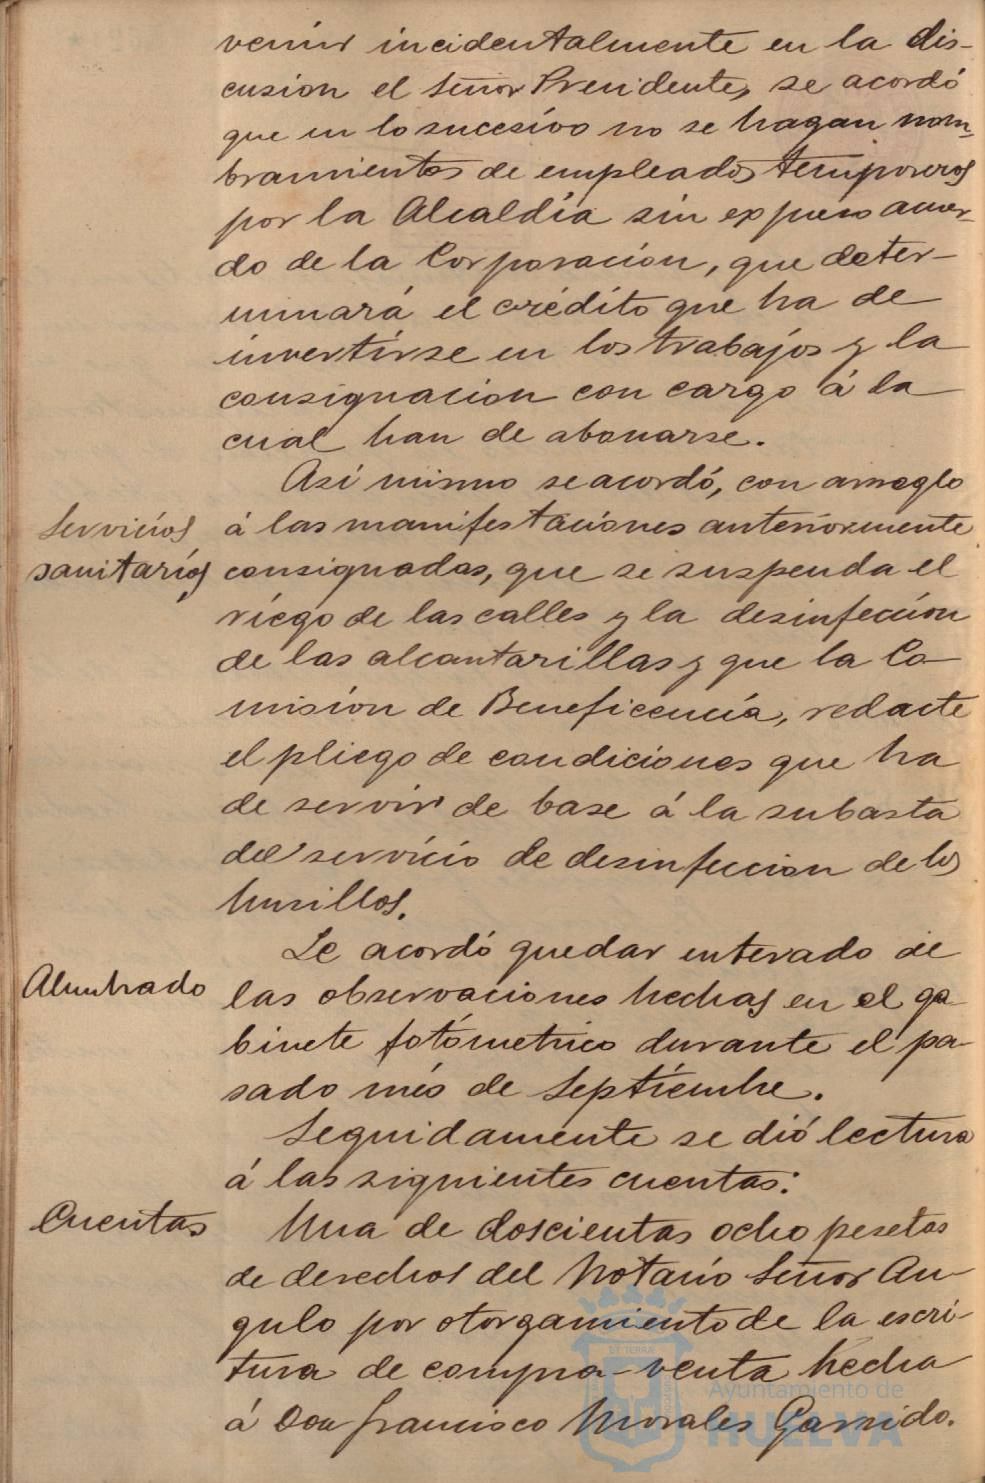 venir incidentalmente en la dis-
cusion el Señor Presidente, se acordó
que en lo sucesivo no se hagan nom-
bramientos de empleados temporeros
por la Alcaldía sin expreso acuer-
do de la Corporacion, que deter-
minará el crédito que ha de
invertirse en los trabajos y la
consignacion con cargo á la
cual han de abonarse.
Así mismo se acordó, con arreglo
Servicios
sanitarios
á las manifestaciones anteriormente
consignadas, que se suspenda el
riego de las calles y la desinfeccion
de las alcantarillas y que la Co-
mision de Beneficencia, redacte
el pliego de condiciones que ha
de servir de base á la subasta
del servicio de desinfeccion de los
husillos.
Alumbrado
Se acordó quedar enterado de
las observaciones hechas en el ga-
binete fotómetrico durante el pa-
sado més de Septiembre.
Seguidamente se dió lectura
á las siguientes cuentas:
Cuentas
Una de doscientas ocho pesetas
de derechos del Notario Señor An-
gulo por otorgamiento de la escri-
tura de compra-venta hecha
á Don Francisco Morales Garrido.
Ayuntamiento de
HUELVA